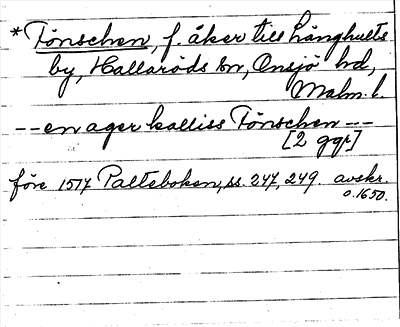 *Tönschen, f. åker till Långhults
by, Hallaröds sn, Onsjö hd,
Malm. l.
-- en ager kalliss Tönschen --
[2 ggr]
före 1517 Palteboken, ss. 247, 249. avskr.
o. 1650.